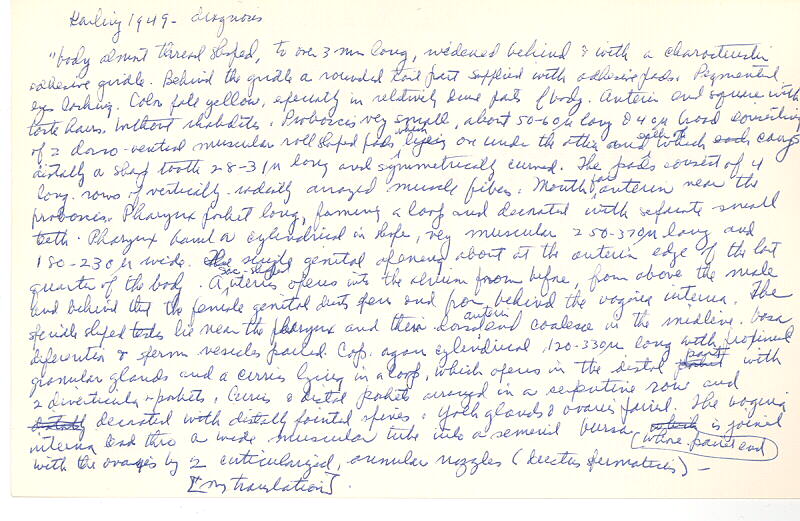 Karling 1949 - diagnosis
"body almost thread shaped, to over 3 mm long, widened behind & with a characteristic
adhesive girdle. Behind the girdle a rounded tail part supplied with adhesive pads. Pigmented
eyes lacking. Color pale yellow, especially in relatively dense parts of body. Anterior end square with
taste hairs. Without rhabdites. Proboscis very small, about 50-60µ long & 40µ broad consisting
of 2 dorso-ventral muscular roll shaped pads which lie one under the other and each of which each carry
distally a sharp tooth 28-31µ long and symmetrically curved. The pads consist of 4
long. rows of vertically-radially arranged muscle fibers. Mouth far anterior near the
proboscis. Pharynx pocket long, forming a loop and decorated with separate small
teeth. Pharynx barrel or cylindrical in shape, very muscular 250-370µ long and
180-230µ wide. The single genital opening about at the anterior edge of the last
quarter of the body. sac-shaped Anteriorly opens into the atrium from before, from above the male
and behind that the female genital ducts open and from behind the vagina interna. The
spindle shaped testes lie near the pharynx and their anterior dorsal end coalesce in the midline. Vasa
diferentia & sperm vesicles paired. Cop. organ cylindrical, 120-330µ long with proximal
granular glands and a cirrus lying in a loop, which opens in the distal part with
2 diverticula-pockets. Cirrus & distal pockets arranged in a serpentine row and
distally decorated with distally pointed spines. Yolk glands & ovaries paired. The vagina
interna lead thro a wide muscular tube into a seminal bursa which is joined
(whose paired end)
with the ovaries by 2 cuticularized, annular nozzles (ductus spermaticus) -
[my translation].